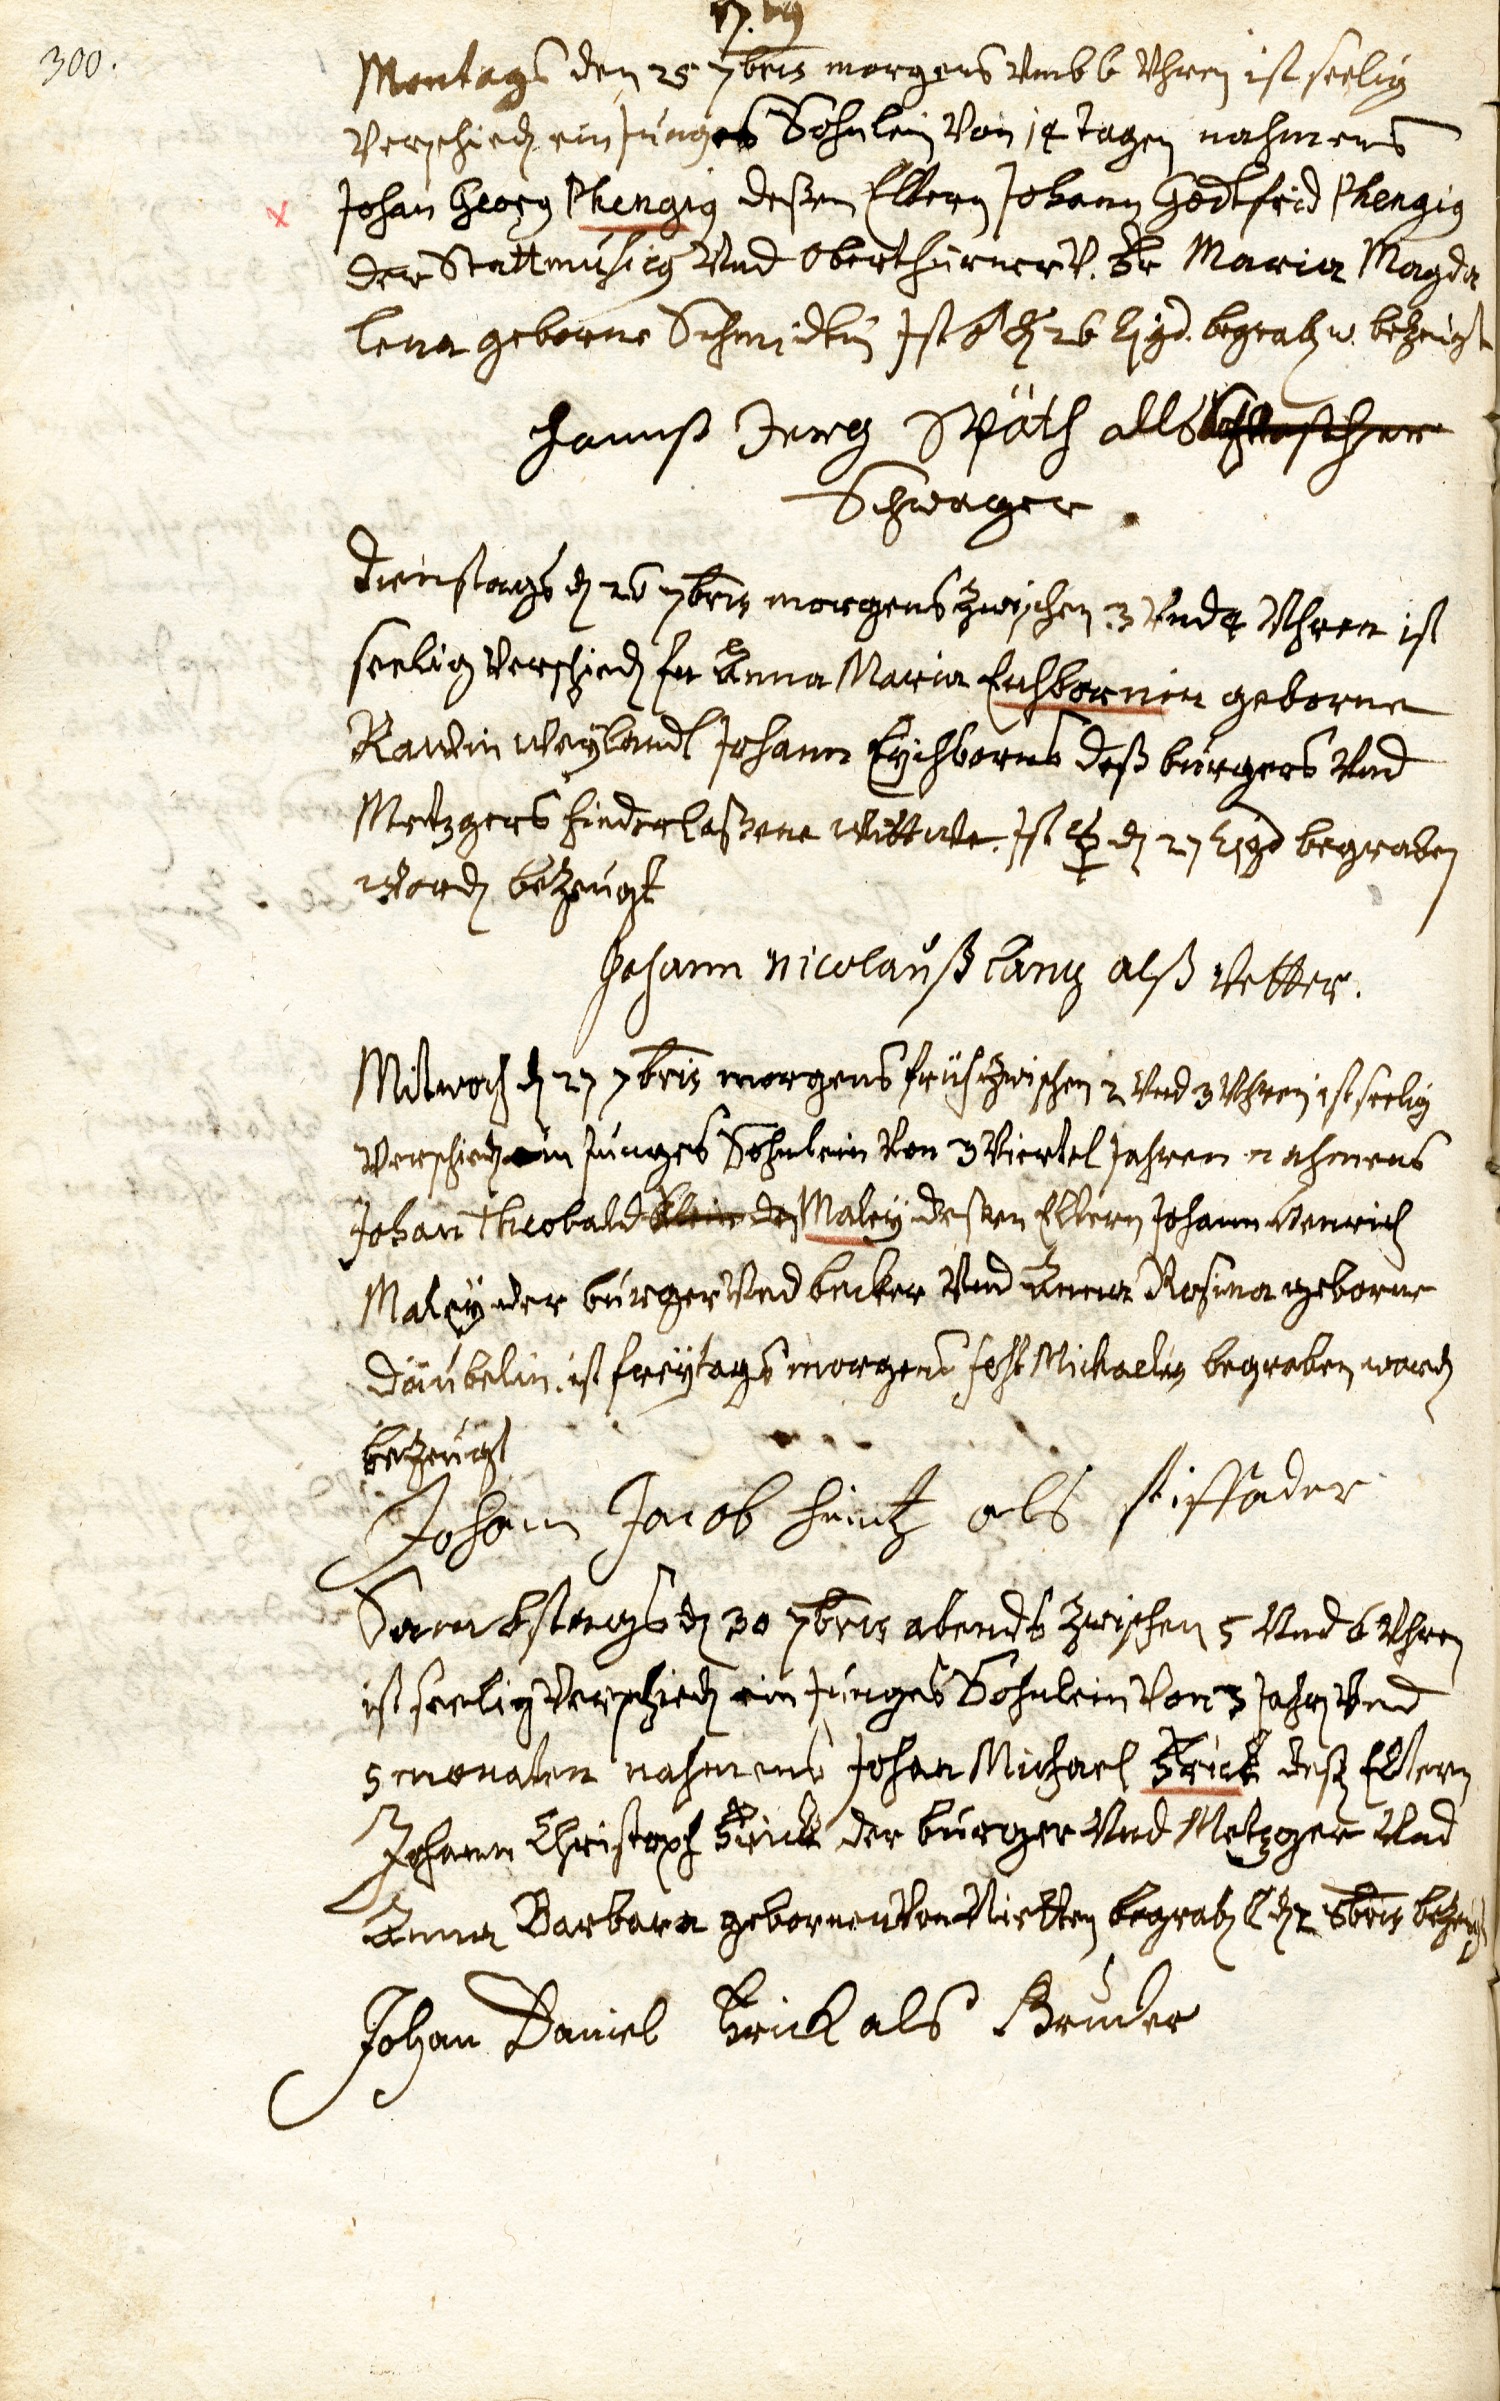 300.
Montags den 25 7bris morgens Vmb 6 Vhren ist seelig
Verschied. ein Junges Söhnlein Von 14 tagen nahmens
Johan Georg Phengig deßen Eltern Johann Godtfrid Phengig
der Stattmusicg Vnd Oberthürner V. Fr Maria Magda
lena geborne Schmidtin Ist d. 26 Ejgd. begrab. w. bezeugt
Hannß Jerg Späth alls
Schwager
Dienstags d. 26 7bris morgens zwischen 3 Vnd 4 Vhren ist
seelig Verschied. fr Anna Maria Eichbornin geborne
Rauvin Weylandt Johann Eychborns deß burgers Vnd
Metzgers hinderlaßene Wittwe. Ist d. 27 Ejgd begraben
Word. bezeugt
Johann Nicolauß Lang alß Vetter.
Mitwoch d. 27 7bris morgens früh zwischen 2 Vnd 3 Vhren ist seelig
Verschied. ein Junges Söhnlein Von 3 Viertel Jahren nahmens
Johan Theobald Maley deßen Eltern Johann Henrich
Maley der burger Vnd becker Vnd Anna Rosina geborne
Däubelin. ist freytags morgens fest Michaelis begraben word.
bezeugt
Johann Jacob Heintz als stiffader
Sambstags d. 30 7bris abends zwischen 5 Vnd 6 Vhren
ist seelig Verschied. ein Junges Söhnlein Von 3 Jahr Vnd
5 monaten nahmens Johan Michael Frick deß. Eltern
Johann Christoph Frick der burger Vnd Metzger Vnd
Anna Barbara geborne Von Nietten begrab. d. 2 8bris bezeugt
Johan Daniel Frick als Bruder